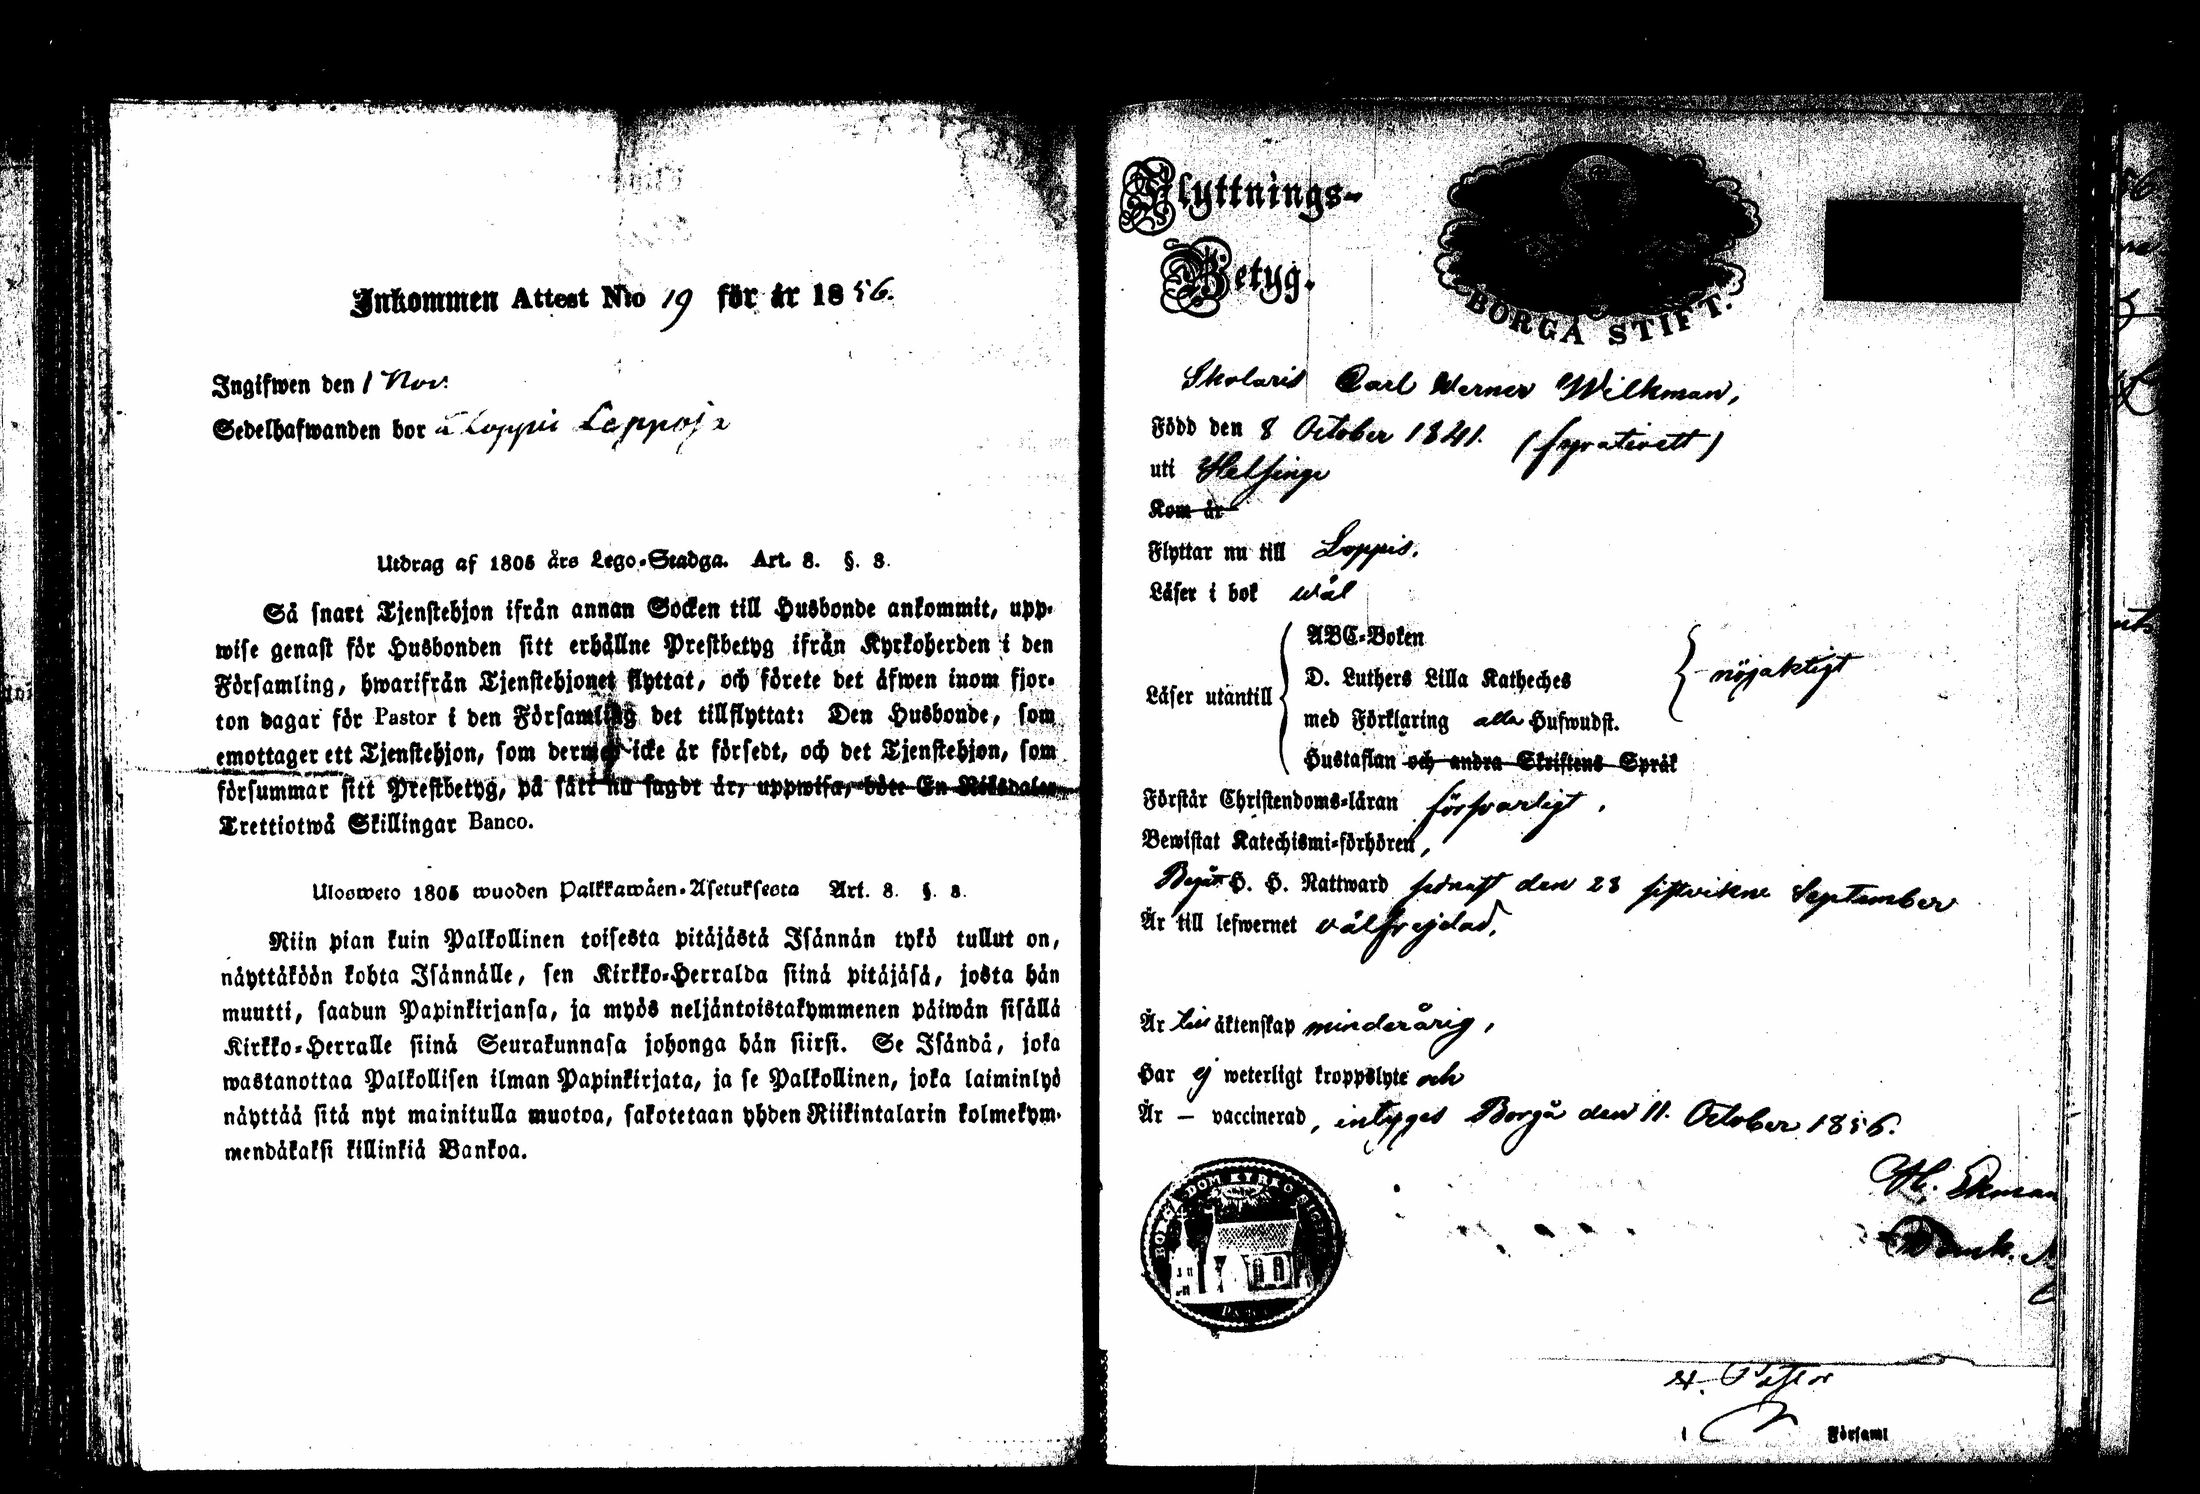 Inkommen Attest N:o 19 för år 1856.
Ingifwen den 1 Nov.
Sedelhafwanden bor å Loppis Leppoja
Utdrag af 1805 års Lego-Stadga. Art. 8. §. 8.
Så snart Tjenstehjon ifrån annan Socken till Husbonde ankommit, upp-
wise genast för Husbonden sitt erhållne Prestbetyg ifrån Kyrkoherden i den
Församling, hwarifrån Tjenstehjonet flyttat, och förete det äfwen inom fjor-
ton dagar för Pastor i den Församling det tillflyttat: Den Husbonde, som
emottager ett Tjenstehjon, som dermed icke är försedt, och det Tjenstehjon, som
försummar sitt Prestbetyg, på sätt nu sagdt är, uppwisa, böte En Riksdaler
Trettiotwå Skillingar Banco.
Ulosweto 1805 wuoden Palkkawäen-Asetuksesta Art. 8. §. 8.
Niin pian kuin Palkollinen toisesta pitäjästä Isännän tykö tullut on,
näyttäköön kohta Isännälle, sen Kirkko-Herralda siinä pitäjäsä, josta hän
muutti, saadun Papinkirjansa, ja myös neljäntoistakymmenen päiwän sisällä
Kirkko-Herralle siinä Seurakunnasa johonga hän siirsi. Se Isändä, joka
wastanottaa Palkollisen ilman Papinkirjata, ja se Palkollinen, joka laiminlyö
näyttää sitä nyt mainitulla muotoa, sakotetaan yhden Riikintalarin kolmekym-
mendäkaksi killinkiä Bankoa.
Flyttnings-
Betyg.
BORGÅ STIFT.
Skolaris Carl Werner Wilkman,
Född den 8 October 1841.
uti Helsinge
Kom år
Flyttar nu till Loppis.
Läser i bok wäl
ABC-Boken
D. Luthers Lilla Katheches
Läser utantill
nöjaktigt
med Förklaring alla Hufwudst.
Hustaflan och andra Skriftens Språk
Förstår Christendoms-läran försvarligt,
Bewistat Katechismi-förhören,
Begått H. H. Nattward sednast den 28 sistvikne September
Är till lefwernet välfrejdad,
Är till äktenskap minderårig,
Har ej weterligt kroppslyte och
Är – vaccinerad, intygas Borgå den 11. October 1856.
Ekman
BORGÅ DOM KYRKO SIGILL
Domk.
Pastor
i Församl